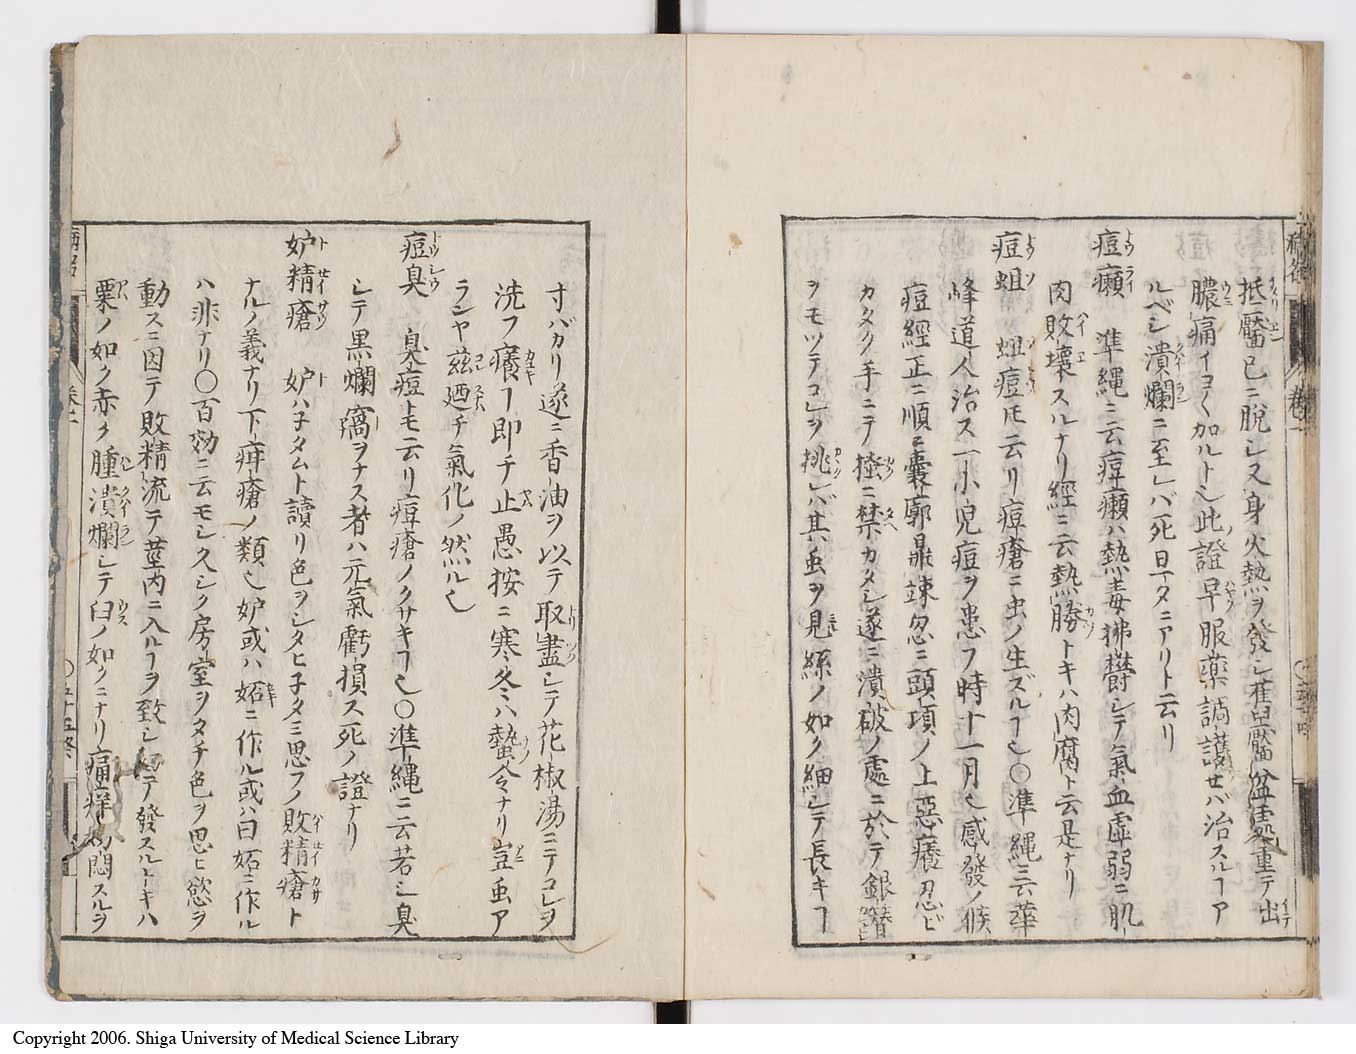 抵靨已ニ脱シ又身火熱ヲ發シ舊臼靨盆盪重テ出
膿痛イヨ〱加ルトヒ此證早服藥調護セバ治スルヿア
ルベシ潰爛ニ至レバ死日下タニアリト云リ
痘癩　準縄ニ云痘癩ハ熱毒拂欝シテ氣血虚弱ニ肌
肉敗壊スルナリ經ニ云熱勝トキハ肉腐ト云是ナリ
痘蛆　蛆痘𪜈云リ痘瘡ニ虫ノ生ズルヿ也〇準縄ニ云華
峰道人治ス一小児痘ヲ患フ時十一月也感發ノ候
痘經正ニ順ニ嚢廓鼎竦忽ニ頭項ノ上惡癢忍ビ
カタク手ニテ搔ニ禁カタシ遂ニ潰破ノ處ニ於テ銀簪
ヲモツテコレヲ挑レバ其虫ヲ見絲ノ如ク細シテ長キヿ
寸バカリ遂ニ香油ヲ以テ取盡シテ花椒湯ニテコレヲ
洗フ癢ヿ即チ止愚按ニ寒冬ハ蟄令ナリ豈虫ア
ランヤ茲廼チ氣化ノ然ル也
痘臭　臭痘トモ云リ痘瘡ノクサキヿ也〇準縄ニ云若シ臭
シテ黒爛窩ヲナス者ハ元氣虧損ス死ノ證ナリ
妒精瘡　妒ハ子タムト讀リ色ヲシタヒ子タミ思フノ敗精瘡ト
ナルノ義ナリ下疳瘡ノ類也妒或ハ妬ニ作ル或ハ曰妬ニ作ル
ハ非ナリ〇百効ニ云モシ久シク房室ヲタチ色ヲ思ヒ慾ヲ
動スニ因テ敗精流テ莖内ニ入ルヿヲ致シテ發スルトキハ
粟ノ如ク赤ク腫潰爛シテ臼ノ如クニナリ痛痒悶スルヲ
〇五十五終
Copyright 2006. Shiga University of Medical Science Library